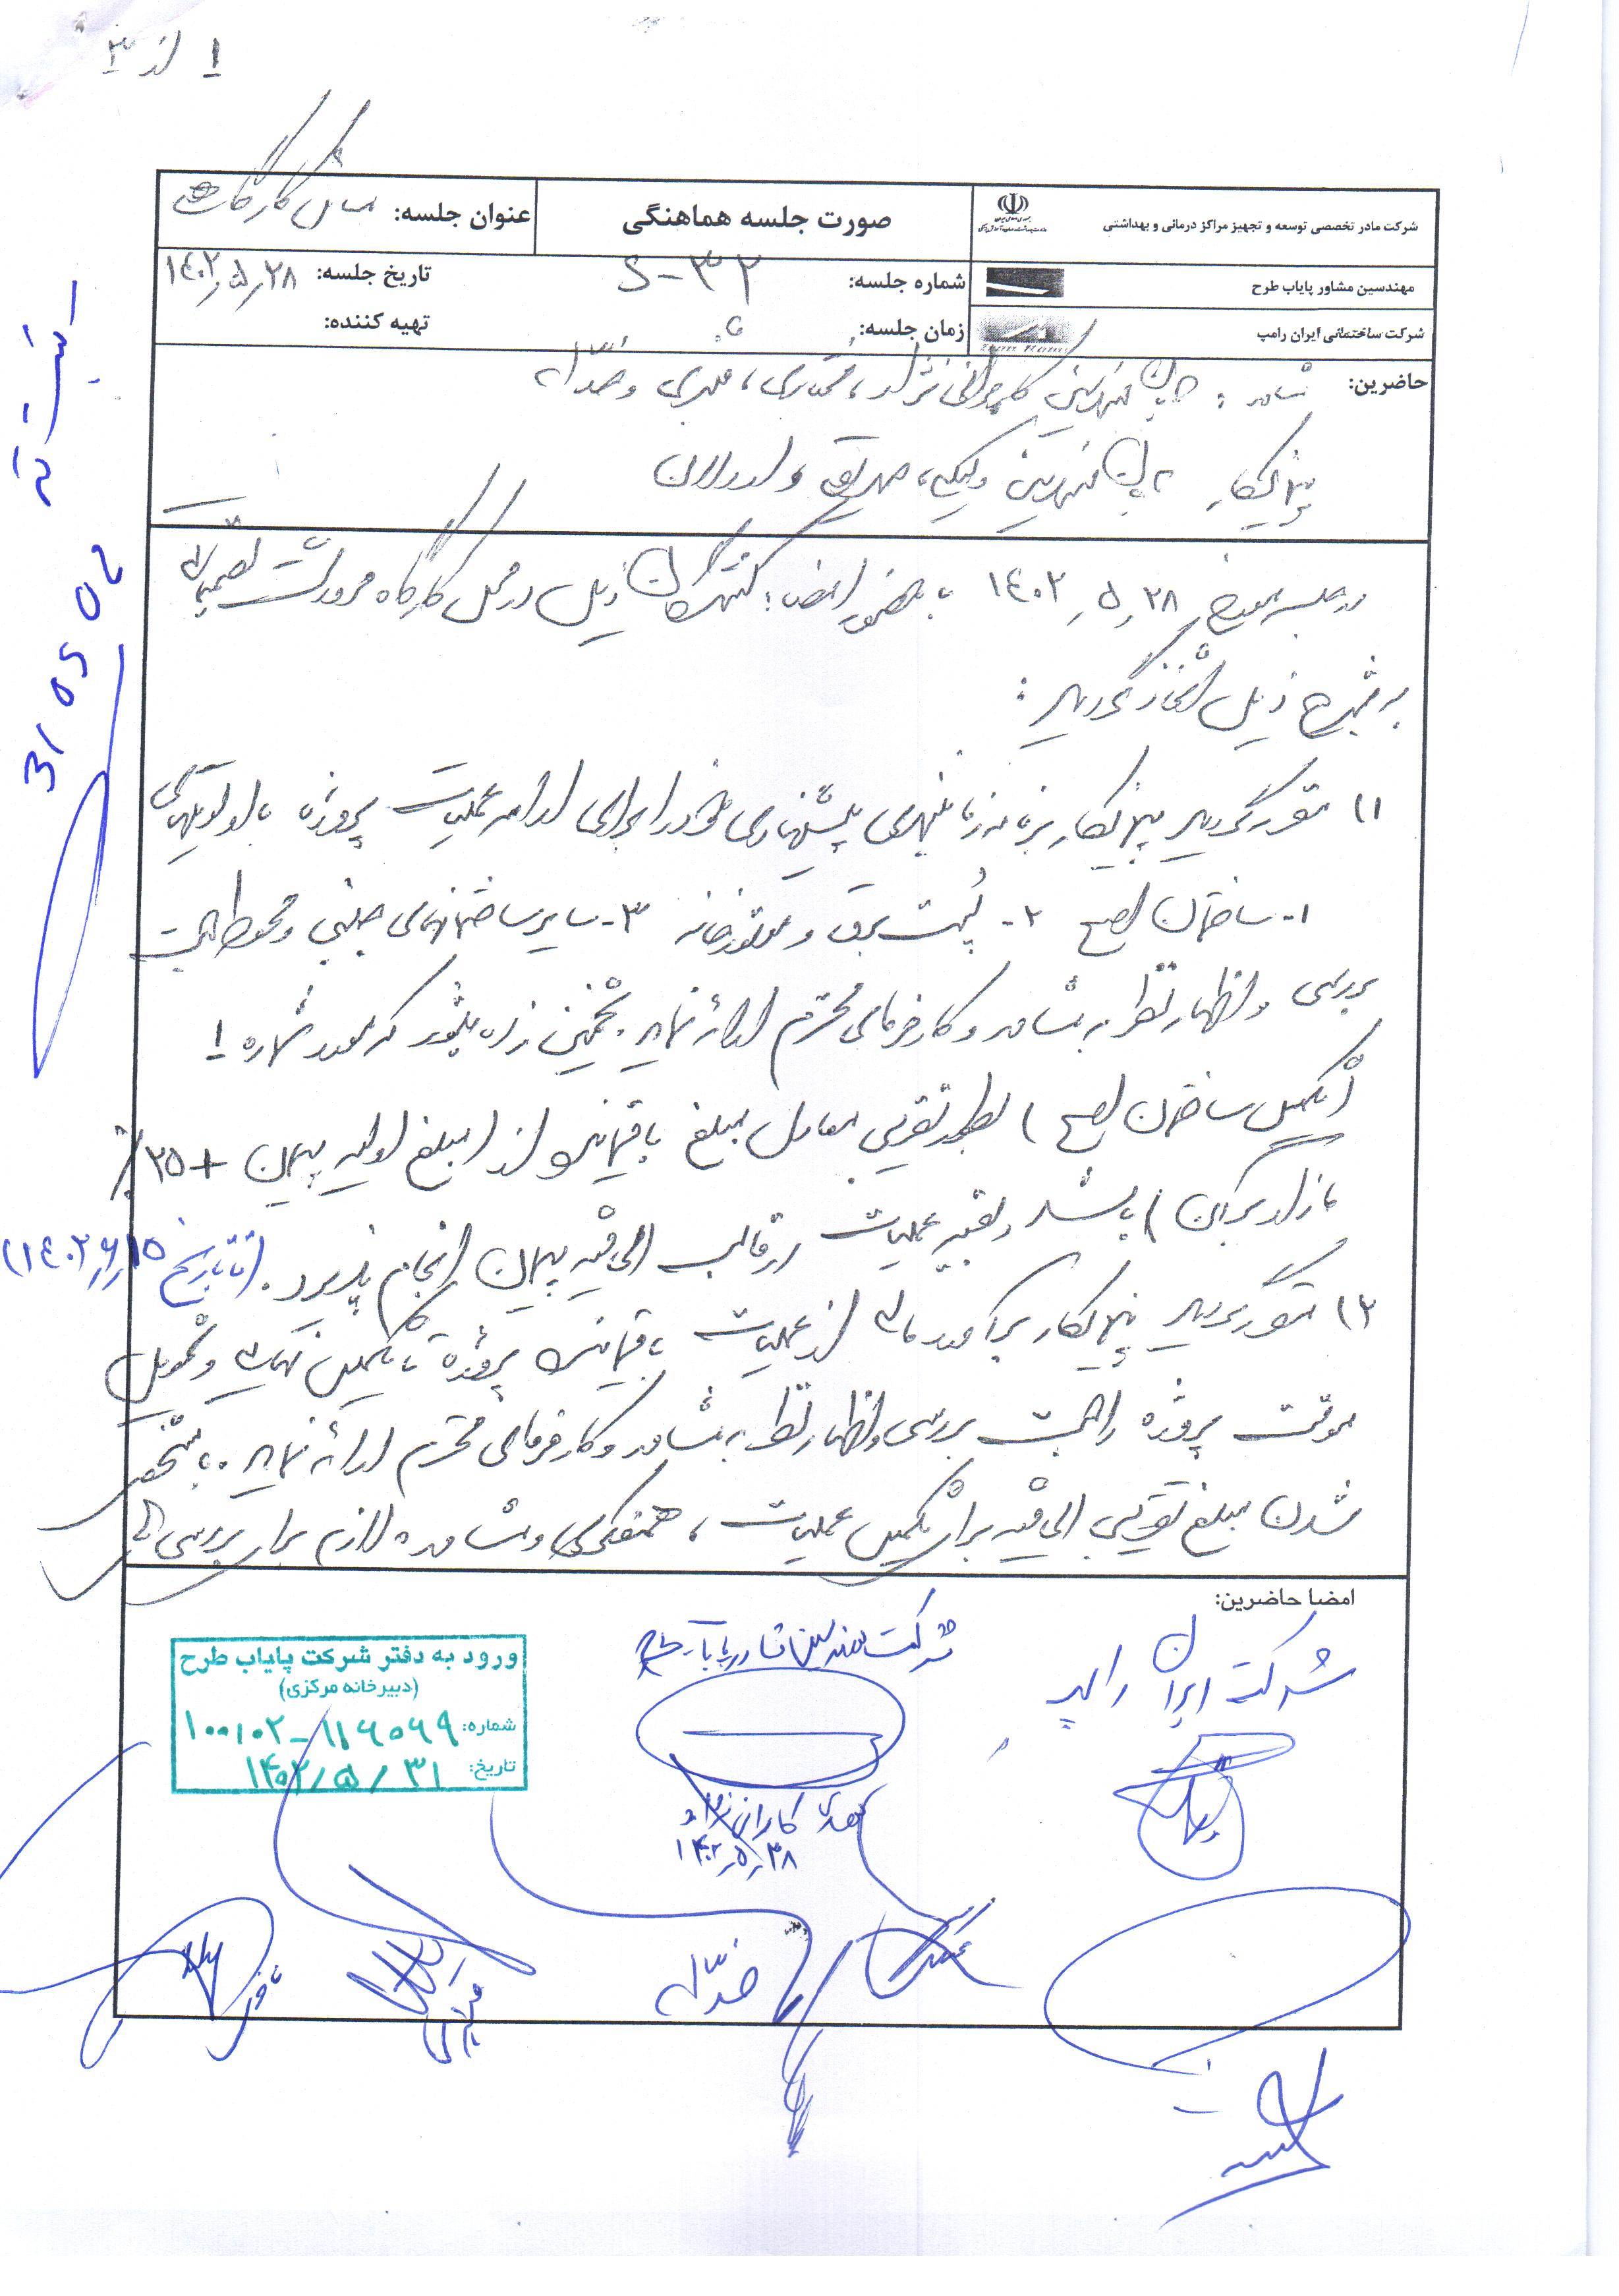 ۱ از ۳
شرکت مادر تخصصی توسعه و تجهیز مراکز درمانی و بهداشتی
صورت جلسه هماهنگی
عنوان جلسه: مسائل کارگاهی
مهندسین مشاور پایاب طرح
شماره جلسه: S-۳۲
تاریخ جلسه: ۱۴۰۲٫۵٫۲۸
شرکت ساختمانی ایران رامپ
زمان جلسه:
تهیه کننده:
حاضرین: مشاور: مهندسین کامرانی نژاد، مختاری، مهری و
پیمانکار: مهندسین
در جلسه مورخ ۱۴۰۲٫۵٫۲۸ با حضور امضاء کنندگان ذیل در محل کارگاه تصمیماتی
به شرح ذیل اتخاذ گردید:
۱) مقرر گردید پیمانکار برنامه زمانبندی پیشنهادی خود را برای ادامه عملیات پروژه با اولویتهای
۱- ساختمان اصلی ۲- پست برق و موتورخانه ۳- سایر ساختمانهای جنبی و محوطه جهت
بررسی و اظهار نظر به مشاور و کارفرمای محترم ارائه نماید. تخمین زده میشود که مورد شماره ۱
(تکمیل ساختمان اصلی) بطور تقریبی معادل مبلغ باقیمانده از (مبلغ اولیه پیمان + ۲۵٪
مازاد بر آن) باشد و بقیه عملیات در قالب الحاقیه پیمان انجام پذیرد. (تا تاریخ ۱۴۰۲٫۶٫۱۵)
۲) مقرر گردید پیمانکار برآورد مالی از عملیات باقیمانده پروژه تا تکمیل نهایی و تحویل
موقت پروژه را جهت بررسی و اظهار نظر به مشاور و کارفرمای محترم ارائه نماید. با مشخص
شدن مبلغ تقریبی الحاقیه برای تکمیل عملیات، همفکری و مشاوره لازم برای بررسی
امضا حاضرین:
شرکت ایران رامپ
شرکت مهندسین مشاور پایاب طرح
مهدی کامرانی نژاد
۱۴۰۲٫۵٫۲۸
ورود به دفتر شرکت پایاب طرح
(دبیرخانه مرکزی)
شماره: ۱۰۰۱۰۲-۱۱۶۵۶۹
تاریخ: ۱۴۰۲/۵/۳۱